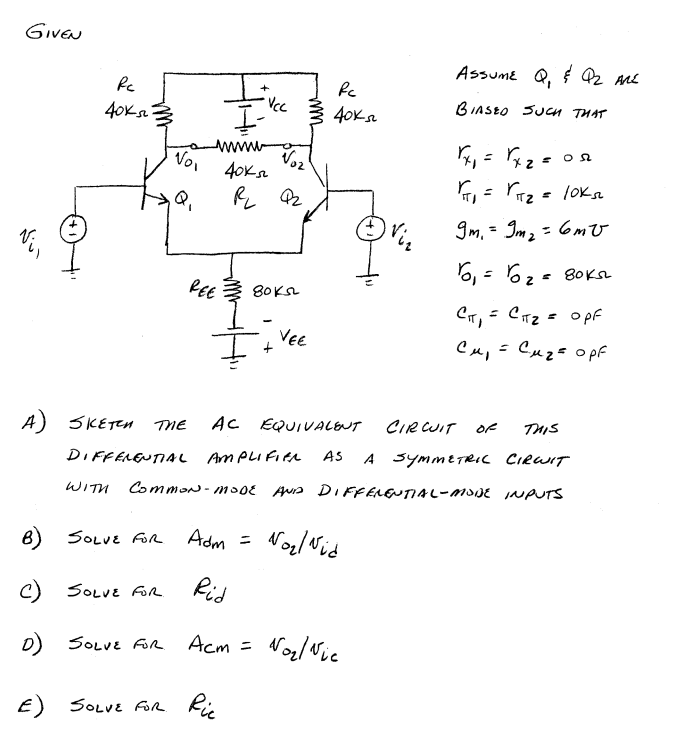 GIVEN
RC
40KΩ
+
VCC
-
RC
40KΩ
Vo1
40KΩ
Vo2
Q1
RL
Q2
+
-
Vi1
+
-
Vi2
REE
80KΩ
-
VEE
+
ASSUME Q1 & Q2 ARE
BIASED SUCH THAT
rx1 = rx2 = 0Ω
rπ1 = rπ2 = 10KΩ
gm1 = gm2 = 6m℧
ro1 = ro2 = 80KΩ
Cπ1 = Cπ2 = 0pF
Cμ1 = Cμ2 = 0pF
A) SKETCH THE AC EQUIVALENT CIRCUIT OF THIS
DIFFERENTIAL AMPLIFIER AS A SYMMETRIC CIRCUIT
WITH COMMON-MODE AND DIFFERENTIAL-MODE INPUTS
B) SOLVE FOR Adm = Vo2/Vid
C) SOLVE FOR Rid
D) SOLVE FOR Acm = Vo2/Vic
E) SOLVE FOR Ric